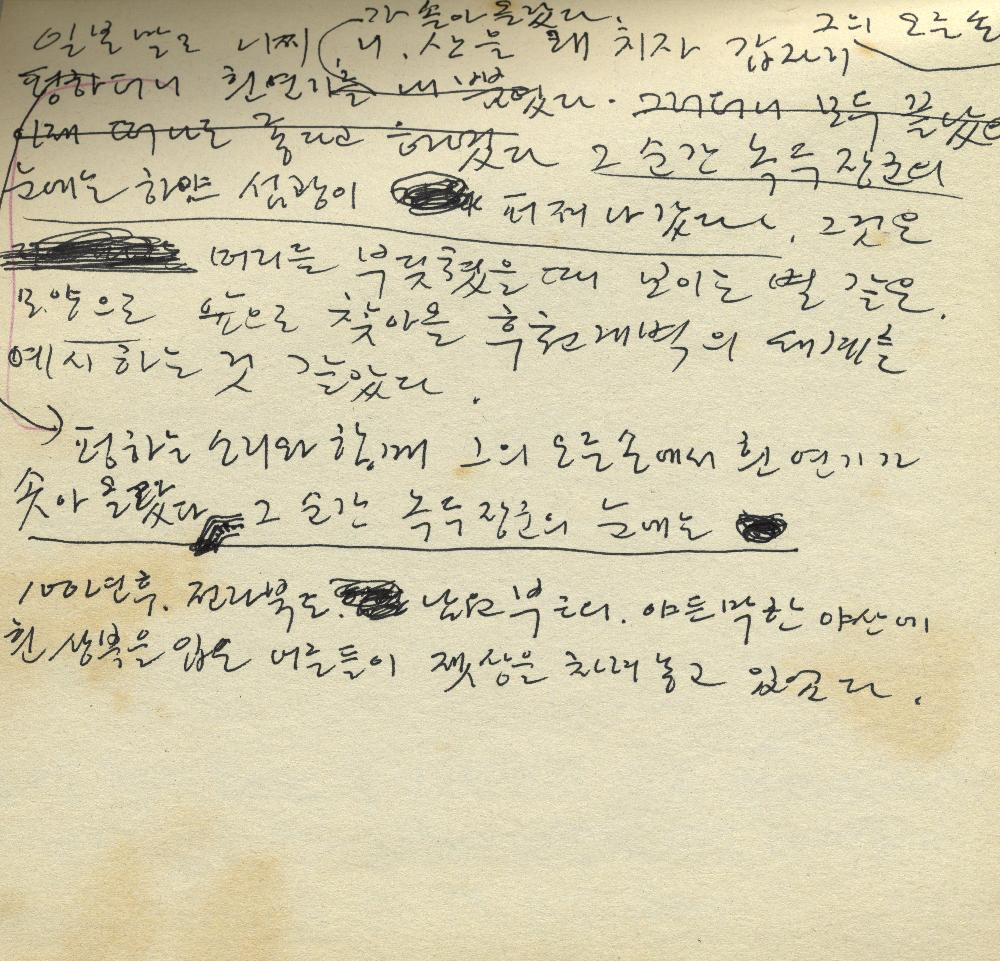 가 솟아 올랐다.
일본말로 니찌니, 산을 왜치자 갑자기 그의 오른손
펑하더니 흰연기를 내뿜었다. 그러더니 모두 끝났으
이제 떠나도 좋다고 하였다 그 순간 녹두장군의
눈에는 하얀 섬광이 퍼져나갔다. 그것은
머리를 부딪혔을 때 보이는 별 같은
모양으로 앞으로 찾아올 후천개벽의 세계를
예시하는 것 같았다.
펑하는 소리와 함께 그의 오른손에서 흰 연기가
솟아 올랐다 그 순간 녹두장군의 눈에는
100년후. 전라북도. 남원부근의. 야트막한 야산에
흰 상복을 입은 어른들이 젯상을 차려놓고 있었다.